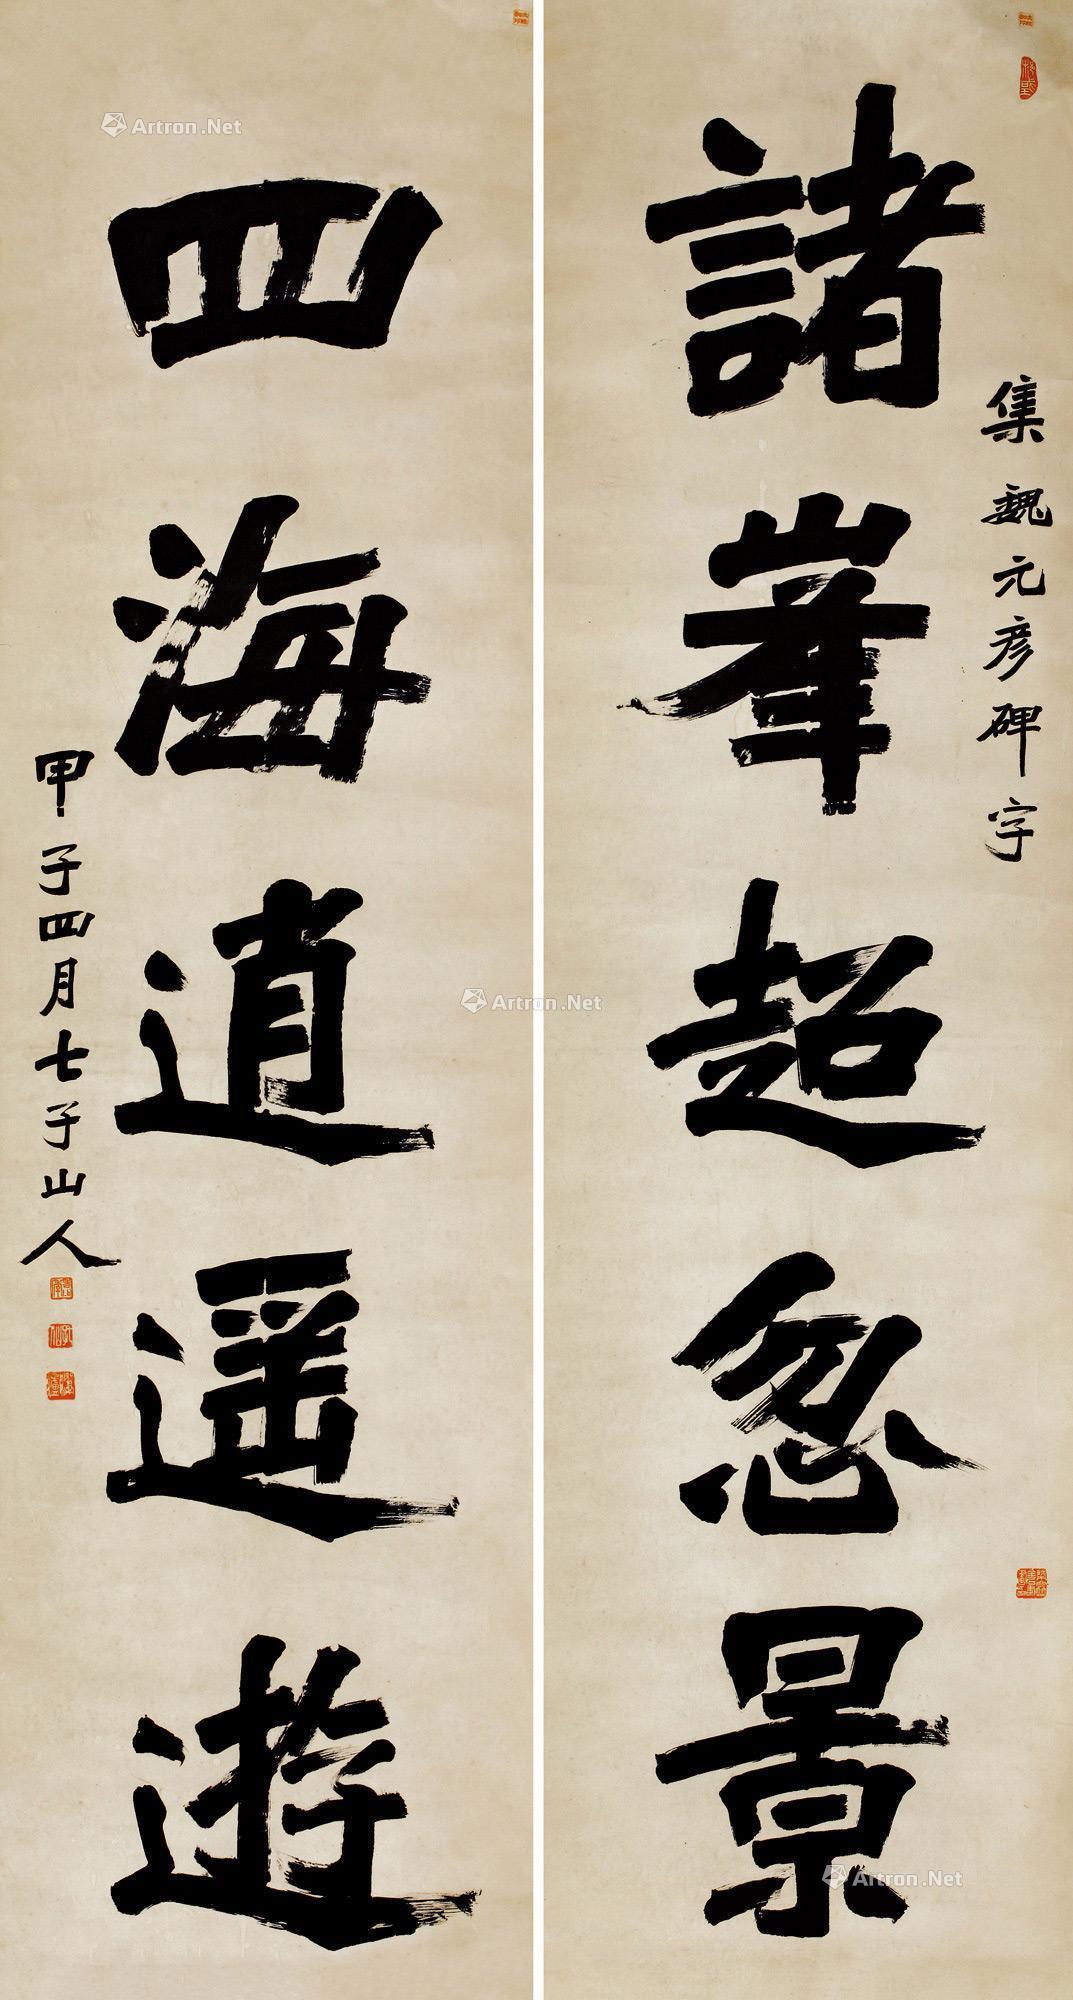 諸峯超忽景
集魏元彦碑字
四海逍遥遊
甲子四月七子山人
Artron.Net
Artron.Net
Artron.Net